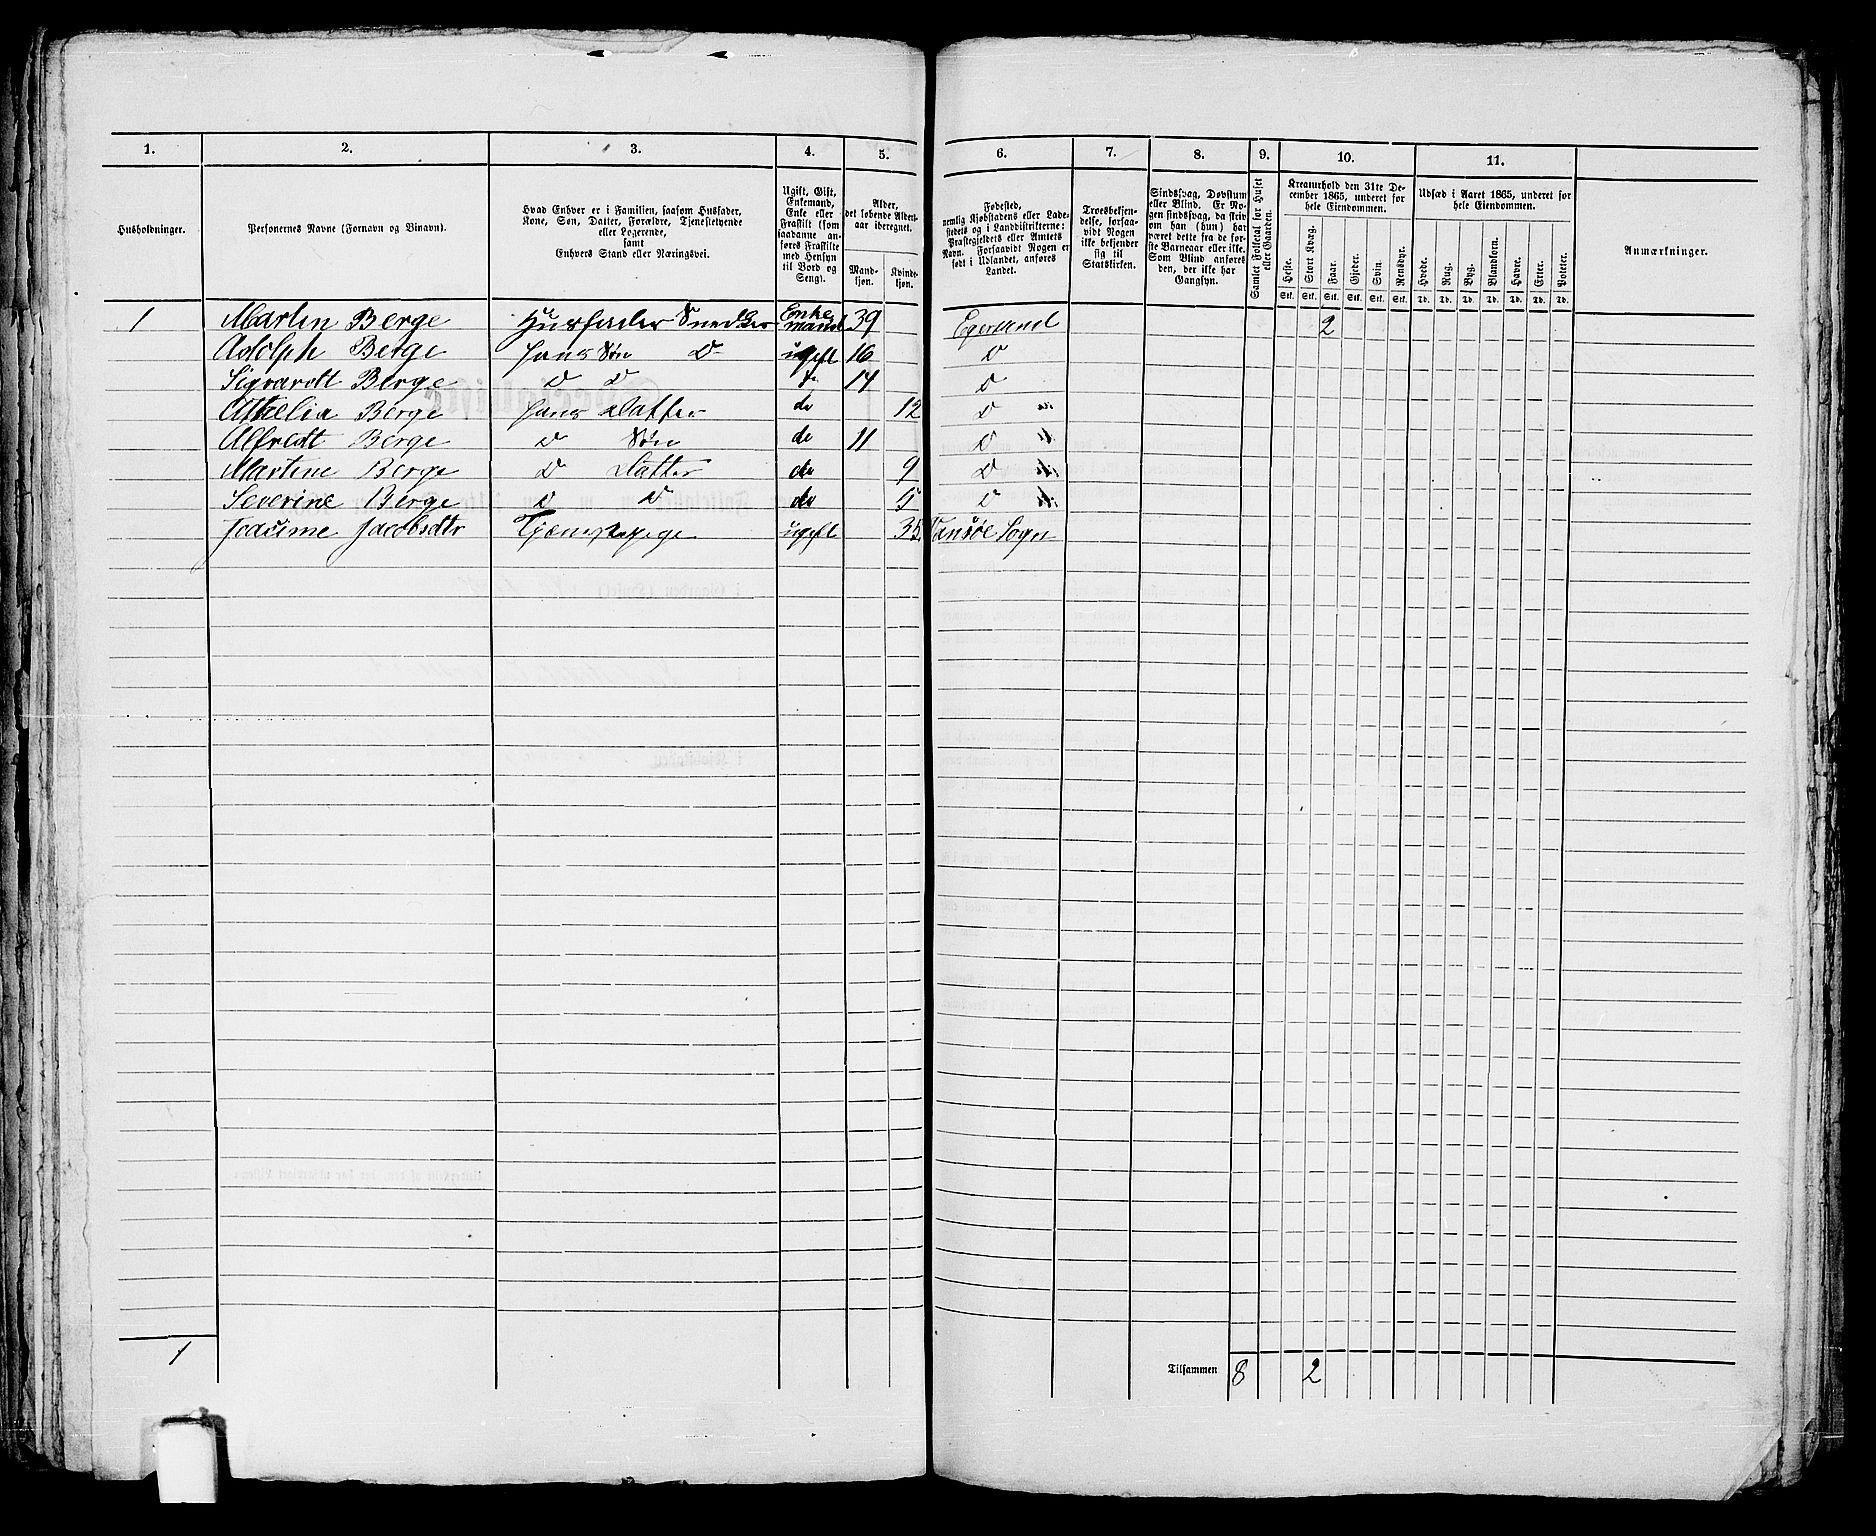 1. 2. 3. 4. 5. 6. 7. 8. 9. 10. 11.
Husholdninger.
Personernes Navne (Fornavn og Binavn).
Hvad Enhver er i Familien, saasom Husfader,
Kone, Søn, Datter, Forældre, Tjenestetyende
eller Logerende,
samt
Enhvers Stand eller Næringsvei.
Ugift, Gift,
Enkemand,
Enke eller
Fraskilt (som
saadanne an-
føres Fraskilte
med Hensyn
til Bord og
Seng).
Alder,
det løbende Alders-
aar iberegnet.
Mand-
kjøn.
Kvinde-
kjøn.
Fødested,
nemlig Kjøbstadens eller Lade-
stedets og i Landdistrikterne:
Præstegjeldets eller Amtets
Navn. Forsaavidt Nogen er
født i Udlandet, anføres
Landet.
Troesbekjen-
delse, forsaa-
vidt Nogen
ikke bekjender
sig til
Statskirken.
Sindssvag, Døvstum
eller Blind. Er No-
gen sindssvag, da skriv
om han (hun) har
været dette fra de før-
ste Barneaar eller ikke.
Som Blind anføres
den, der ikke har
Gangsyn.
Samlet Folketal for Huset
eller Gaarden.
Kreaturhold den 31te De-
cember 1865, underet for
hele Eiendommen.
Heste. Stort Kvæg. Faar. Gjeder. Svin. Rensdyr.
Stk. Stk. Stk. Stk. Stk. Stk.
Udsæd i Aaret 1865, underet for
hele Eiendommen.
Hvede. Rug. Byg. Blandkorn. Havre. Erter. Poteter.
Td. Td. Td. Td. Td. Td. Td.
Anmærkninger.
1 Martin Berge Husfader Snedker Enke mand 39 Egersund 2
Adolph Berge Hans Søn D ugift 16 D
Sigvardt Berge D D d 14 D
Athelia Berge Hans Datter do 12 D
Alfredt Berge D Søn do 11 D
Martine Berge D Datter do 9 D
Severine Berge D D do 5 D
Jacobsdtr Tjenestepige ugift 35 Sogn
1
Tilsammen 8 2